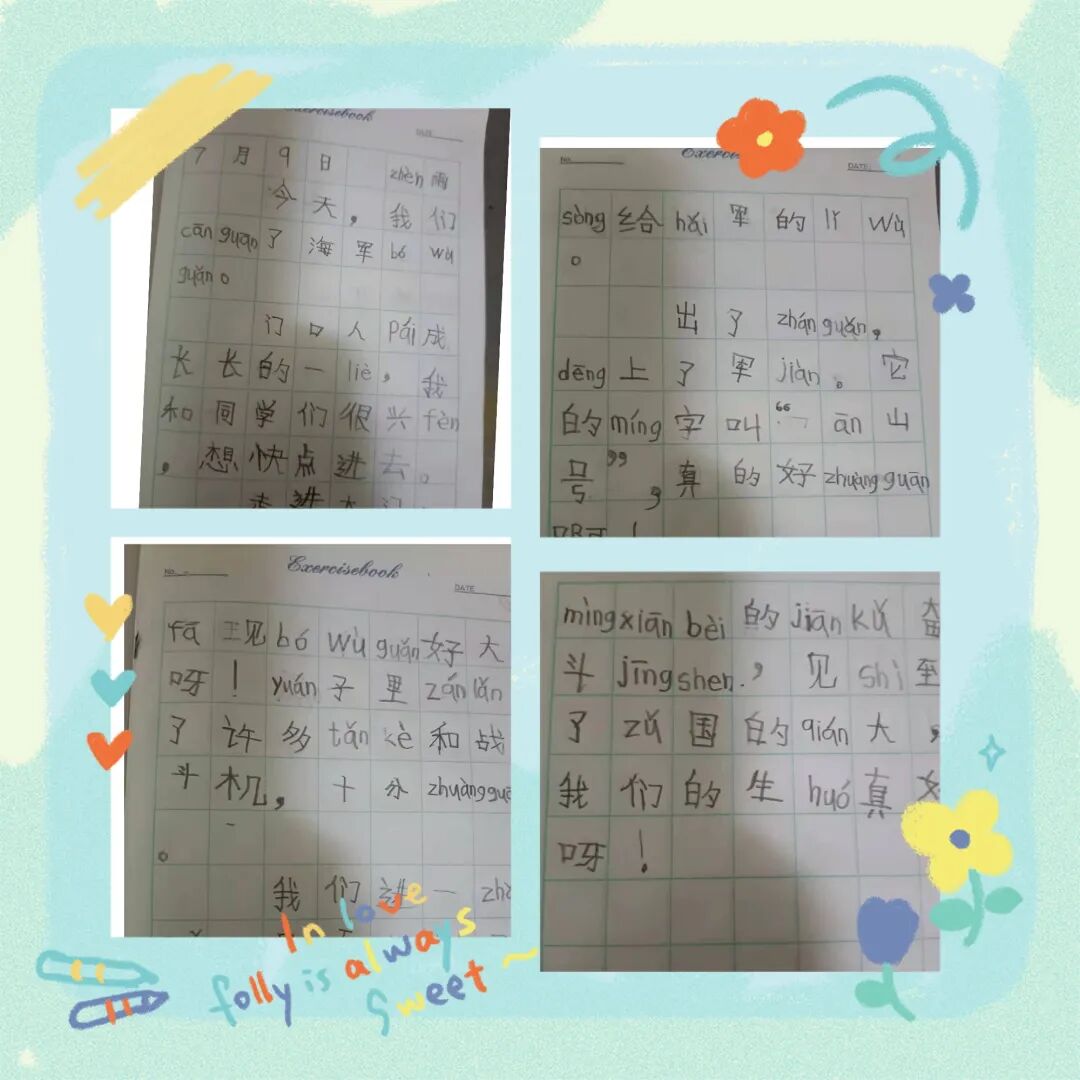 Exercisebook
DATE
7月9日 zhèn雨
今天,我们
cān guān了海军bó wù
guǎn。
门口人pái成
长长的一liè,我
和同学们很兴fèn
,想快点进去。
走进大门
No.
DATE
sòng给hǎi军的lǐ wù
。
出了zhán guǎn,
dēng上了军jiàn。它
的míng字叫“ān山
号”,真的好zhuàng guān
啊!
No.
Exercisebook
DATE
fā现bó wù guǎn好大
呀!yuán子里zán lǎn
了许多tǎn kè和战
斗机,十分zhuàng
。
我们进一
mìng xiān bèi的jiān kǔ奋
斗jīng shen,见shì至
了zǔ国的qián大,
我们的生huó真
呀!
In love
folly is always
sweet~